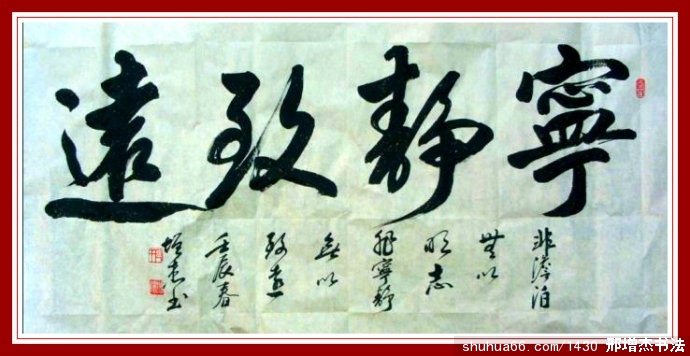 寧靜致遠
非澹泊
無以
明志
非寧靜
無以
致遠
壬辰春
增杰书
shuhua66.com/1430 邢增杰书法